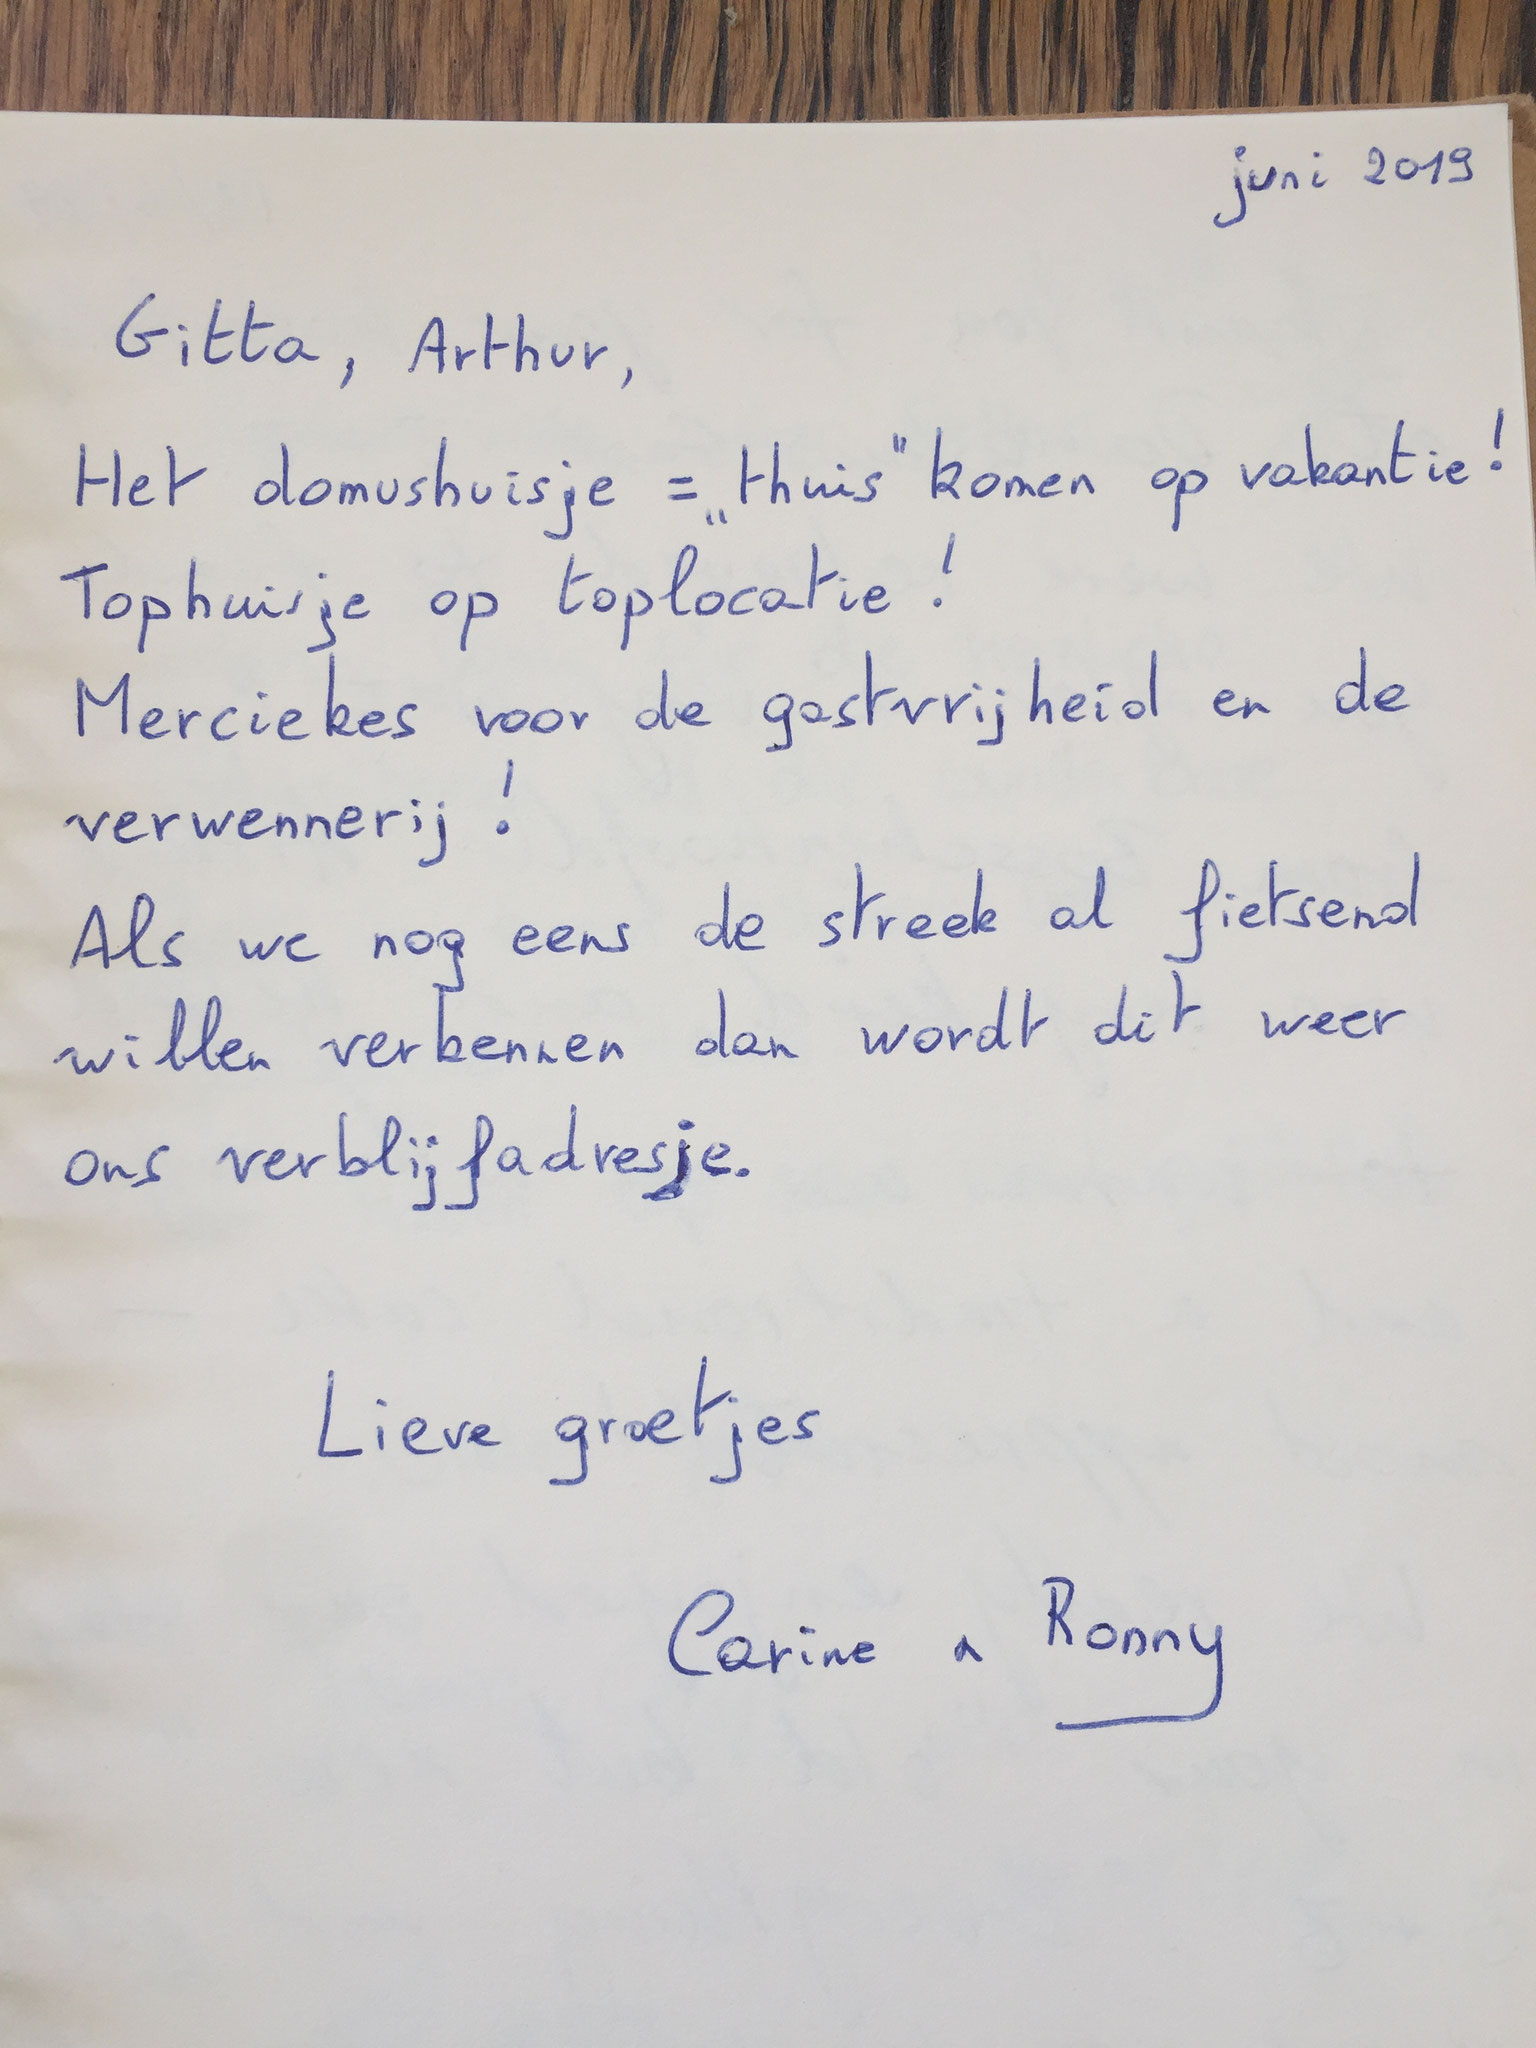 juni 2019
Gitta, Arthur,
Het domushuisje = „thuis" komen op vakantie!
Tophuisje op toplocatie!
Merciekes voor de gastvrijheid en de
verwennerij!
Als we nog eens de streek al fietsend
willen verkennen dan wordt dit weer
ons verblijfadresje.
Lieve groetjes
Carine n Ronny